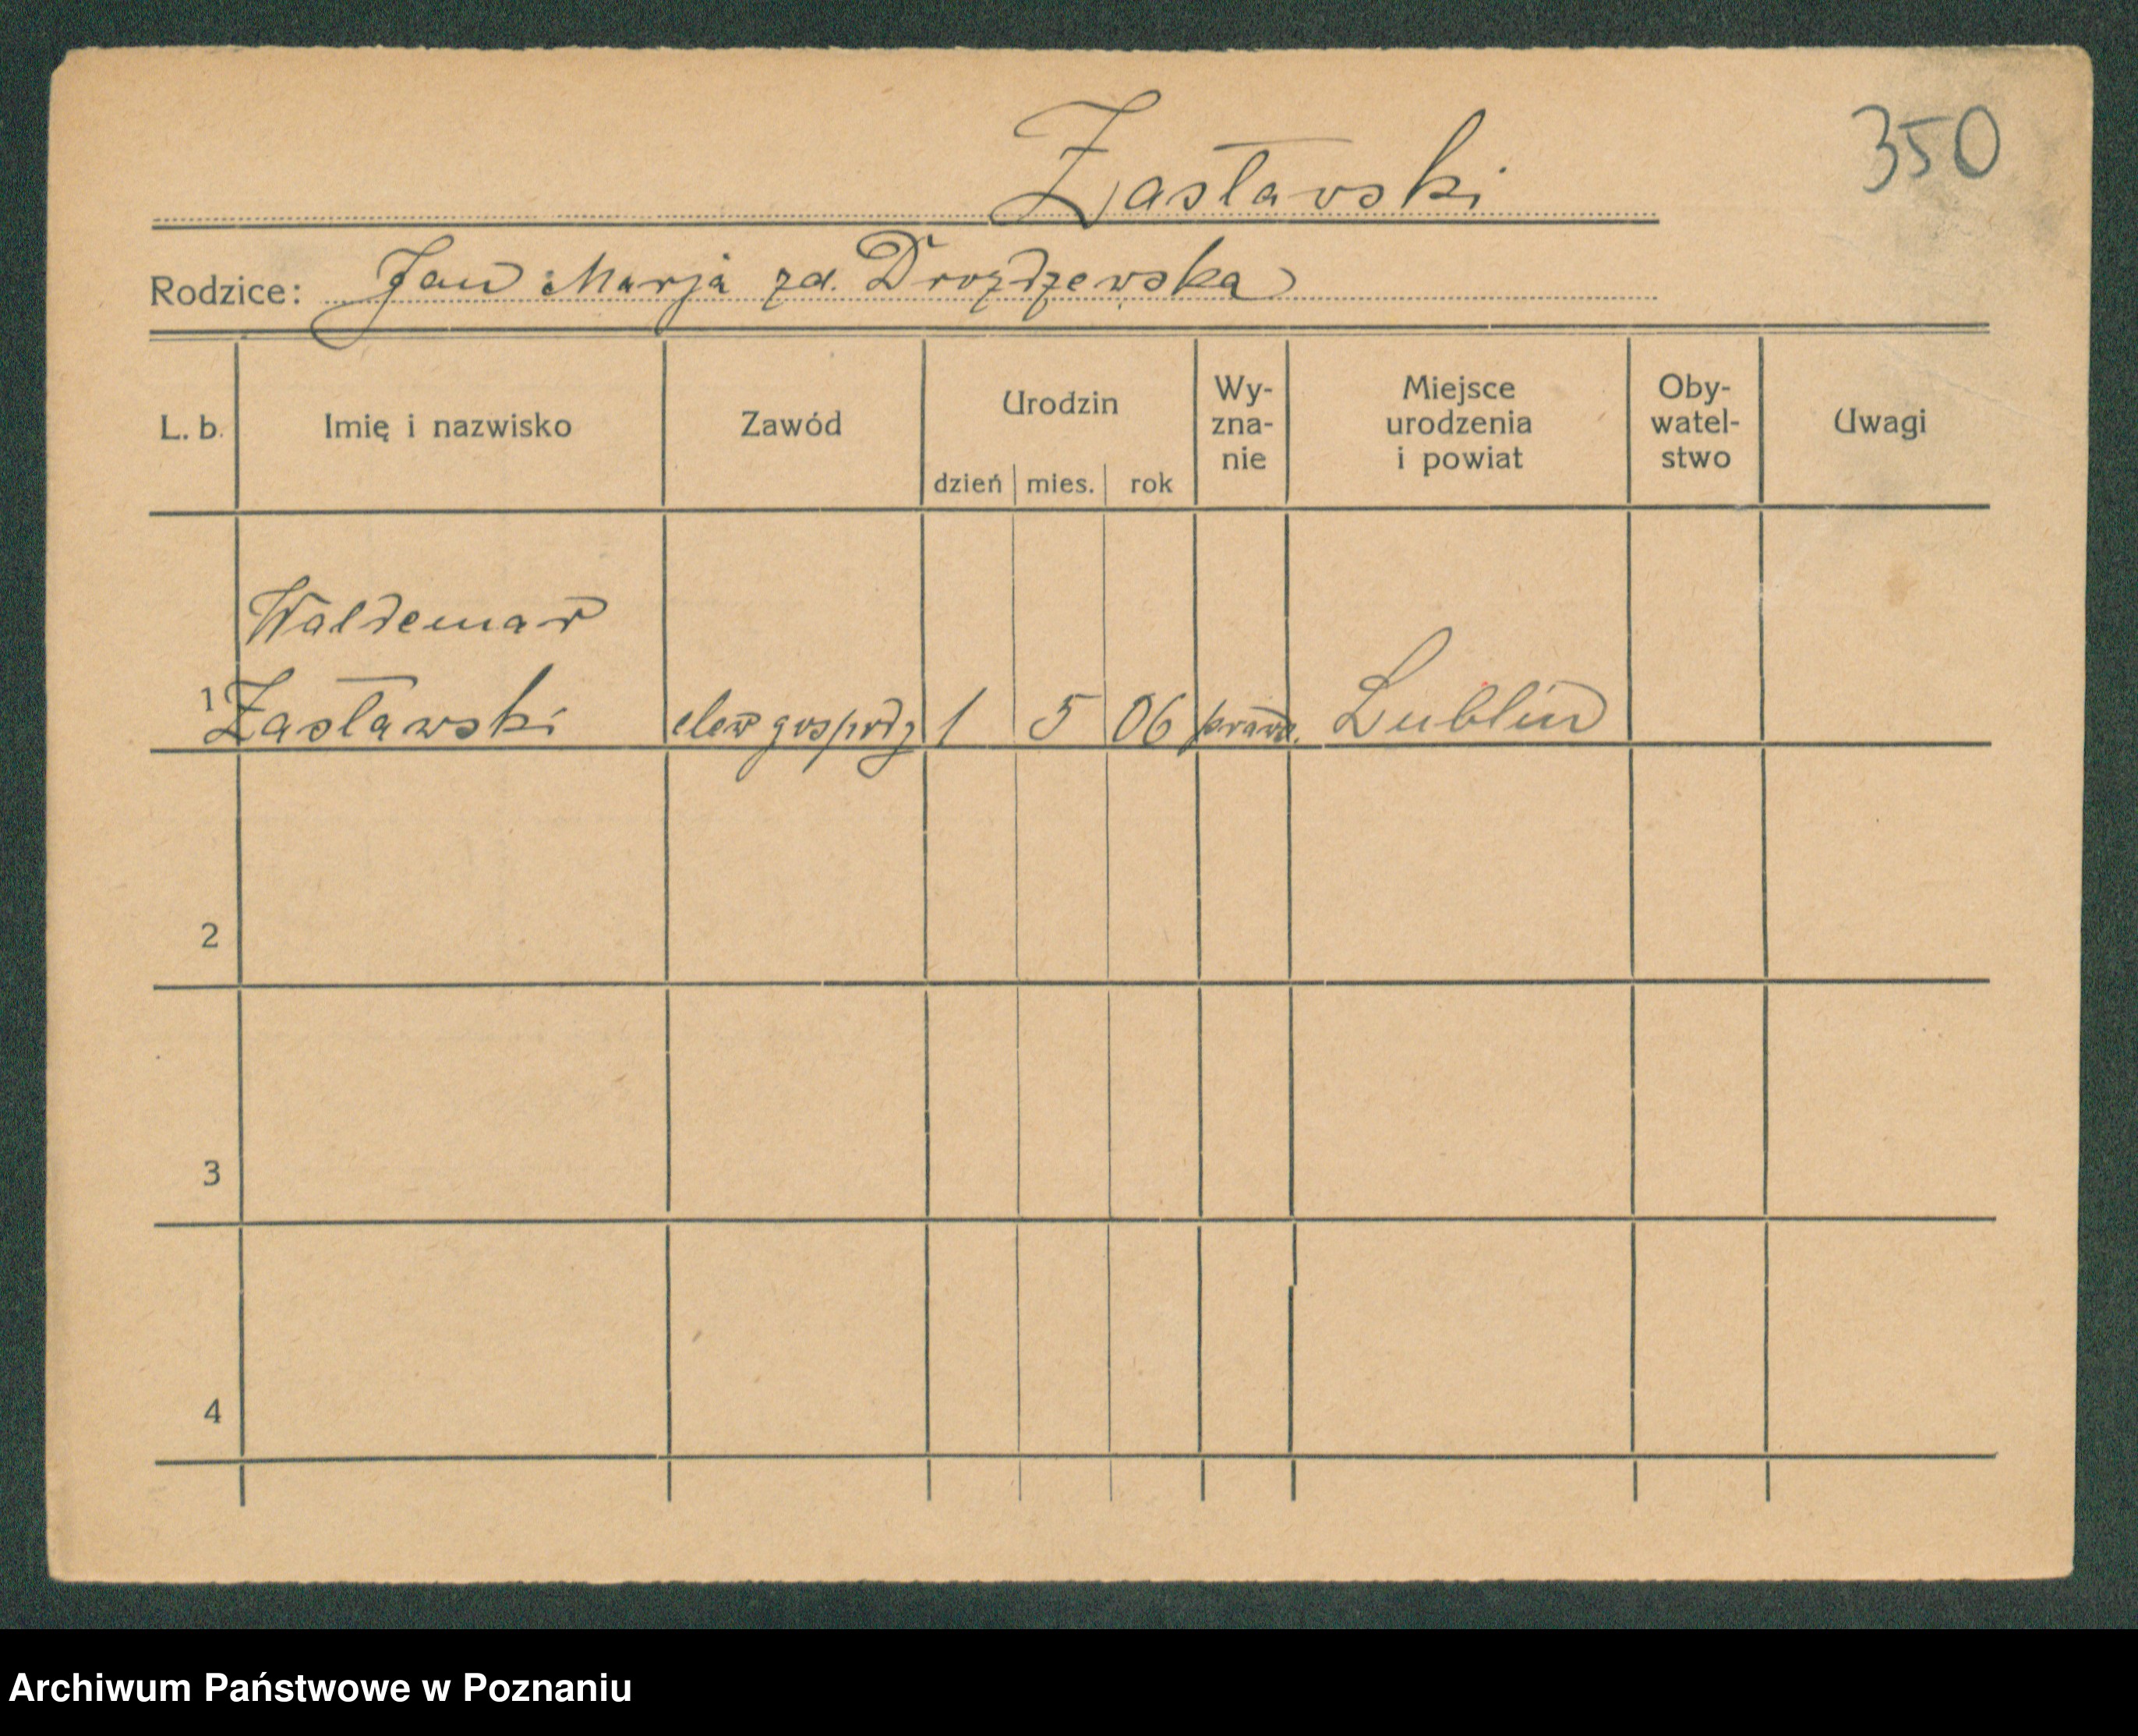 Zasławski
350
Rodzice: Jan Marja zd. Drozdzewska
L. b.
Imię i nazwisko
Zawód
Urodzin
dzień
mies.
rok
Wy-
zna-
nie
Miejsce
urodzenia
i powiat
Oby-
watel-
stwo
Uwagi
Waldemar
1 Zasławski elew gospodz 1 5 06 praw. Lublin
2
3
4
Archiwum Państwowe w Poznaniu